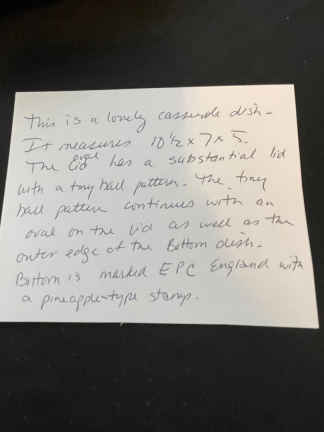 This is a lovely casserole dish-
It measures 10 1/2 x 7 x 5.
The oval lid has a substantial lid
with a tiny ball pattern. The tiny
ball pattern continues with an
oval on the lid as well as the
outer edge of the Bottom dish.
Bottom is marked EPC England with
a pineapple-type stamp.